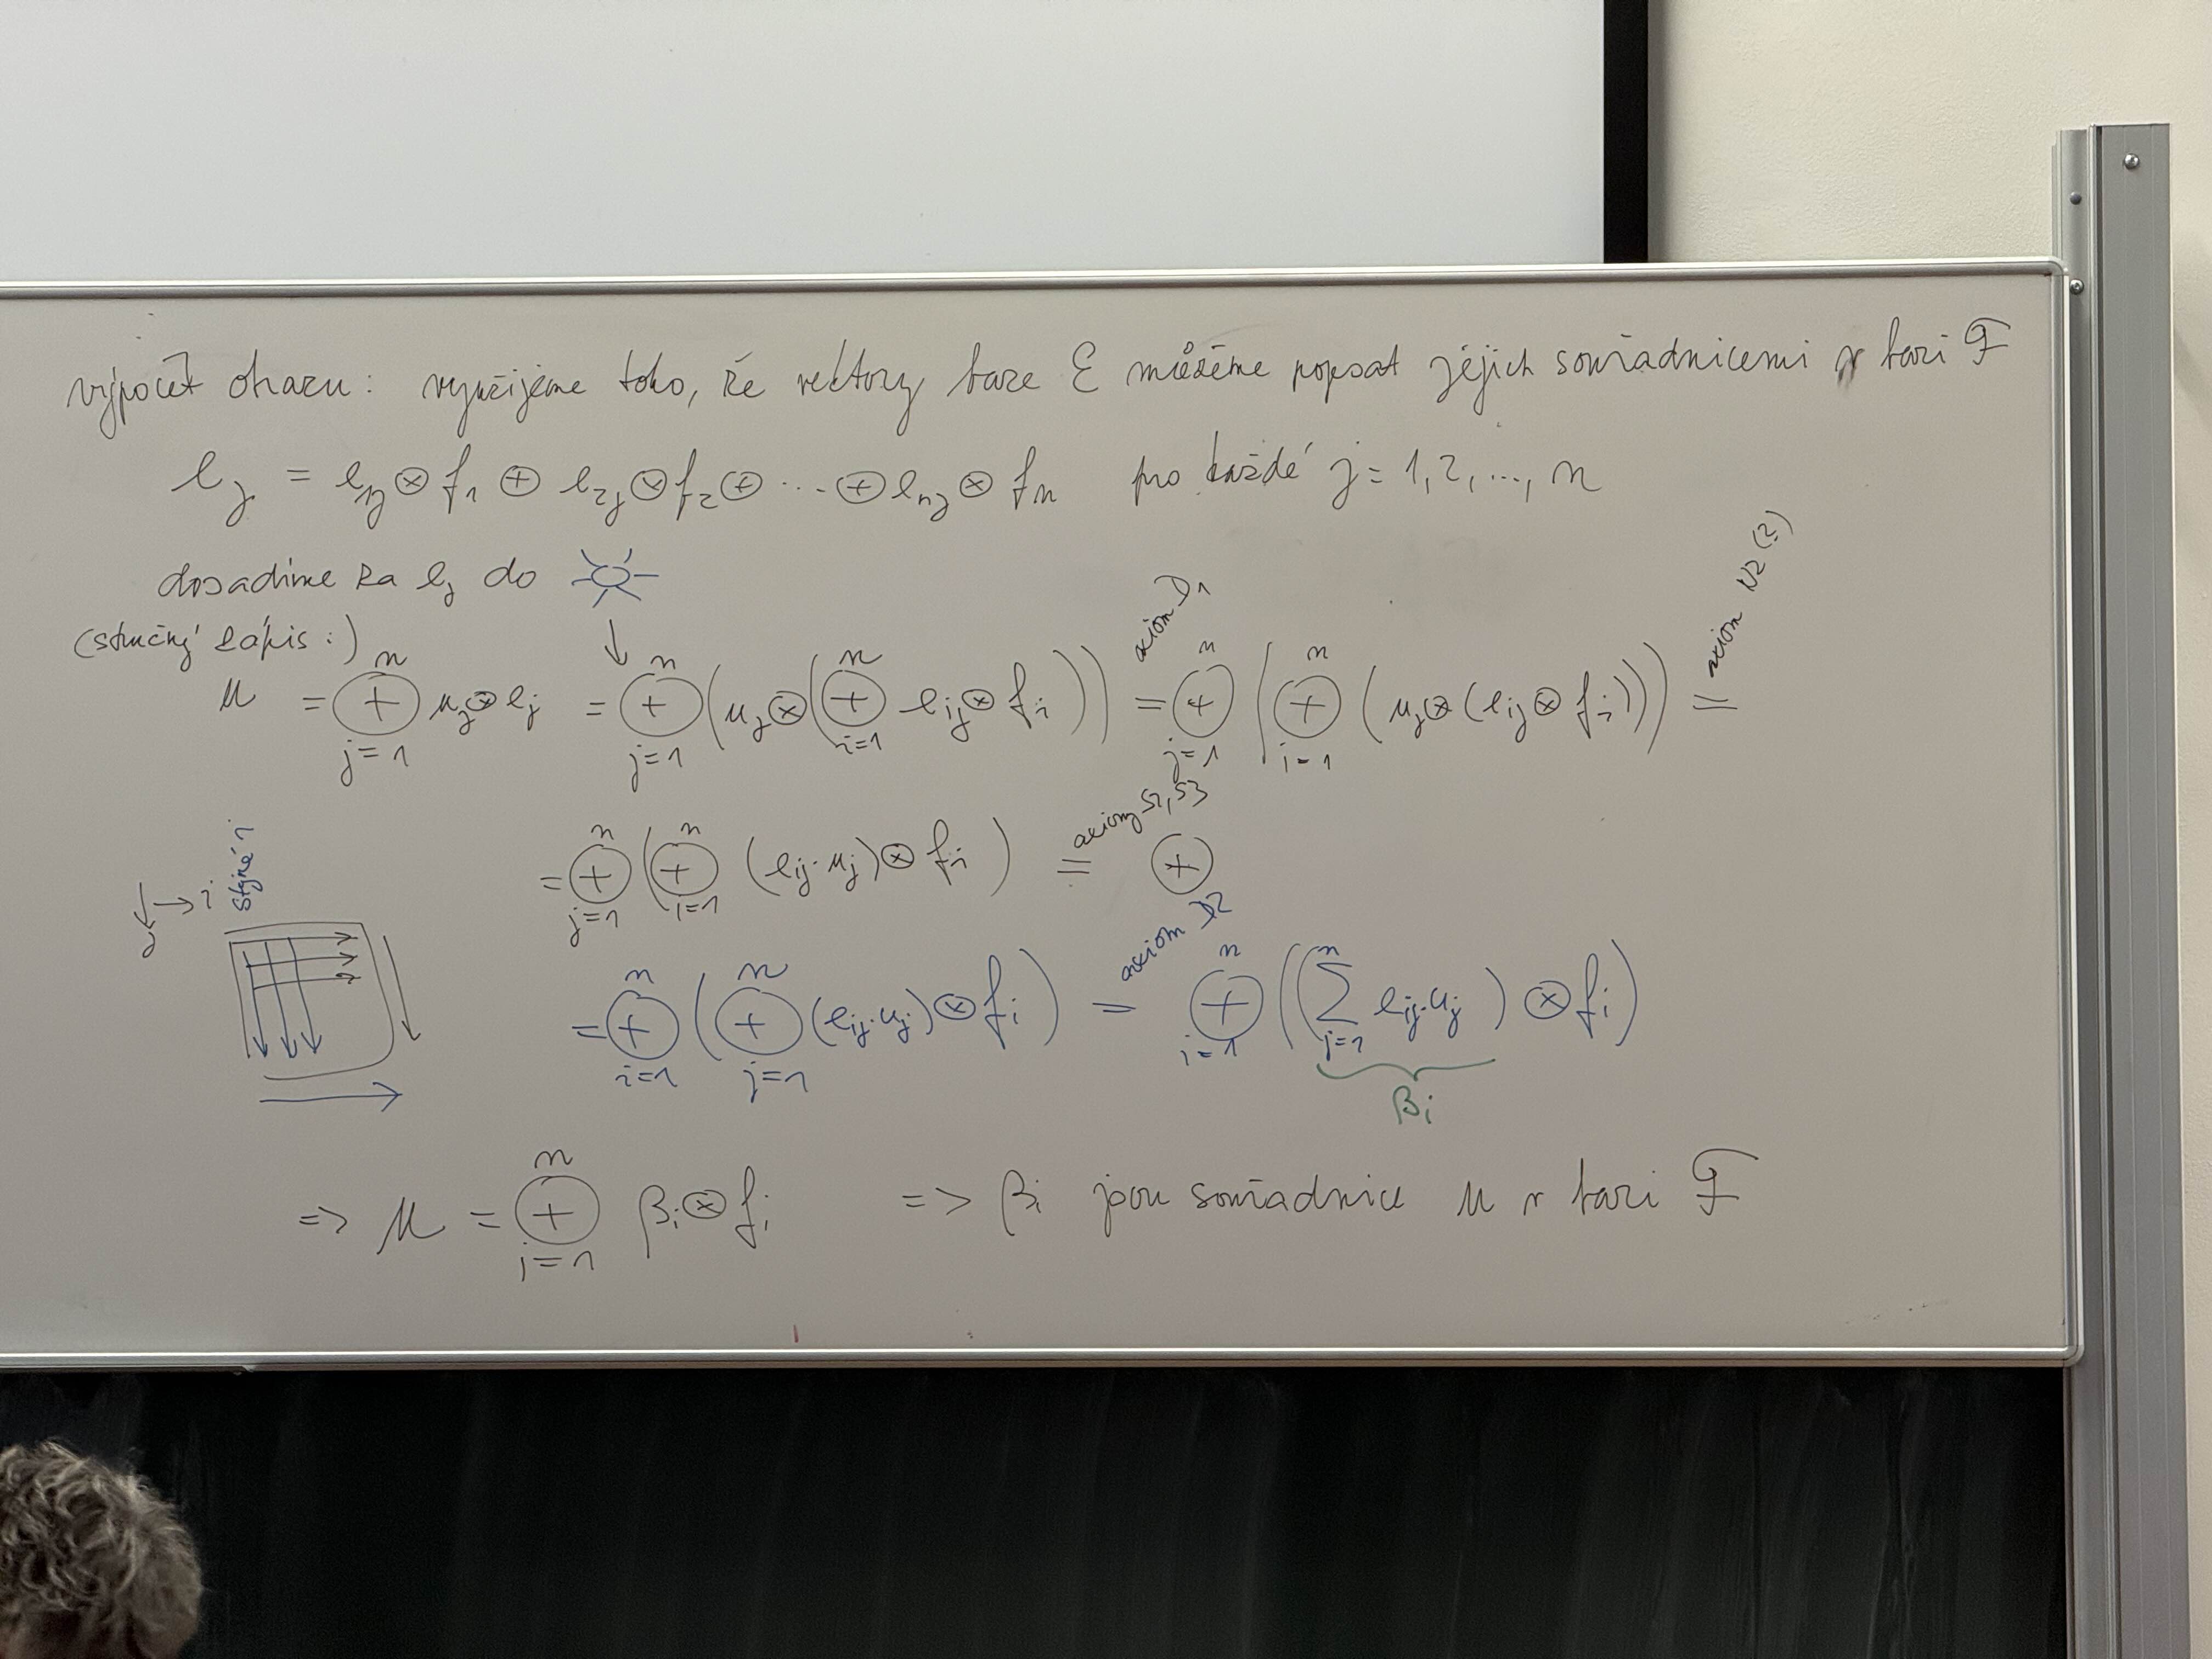 výpočet obrazu: využijeme toho, že vektory báze ℰ můžeme popsat jejich souřadnicemi v bázi ℱ
e_j = e_1j ⊗ f_1 ⊕ e_2j ⊗ f_2 ⊕ ... ⊕ e_nj ⊗ f_n pro každé j = 1, 2, ..., n
dosadíme za e_j do ☼
(stručný zápis:)
u = ⊕_{j=1}^{n} u_j ⊗ e_j = ⊕_{j=1}^{n} (u_j ⊗ (⊕_{i=1}^{n} e_ij ⊗ f_i)) =^{axiom D1} ⊕_{j=1}^{n} (⊕_{i=1}^{n} (u_j ⊗ (e_ij ⊗ f_i))) =^{axiom N2 (?)}
= ⊕_{j=1}^{n} (⊕_{i=1}^{n} (e_ij · u_j) ⊗ f_i) =^{axiomy S2, S3} ⊕
j → i stejné i
= ⊕_{i=1}^{n} (⊕_{j=1}^{n} (e_ij · u_j) ⊗ f_i) =^{axiom D2} ⊕_{i=1}^{n} ((∑_{j=1}^{n} e_ij · u_j) ⊗ f_i)
β_i
=> u = ⊕_{i=1}^{n} β_i ⊗ f_i => β_i jsou souřadnice u v bázi ℱ